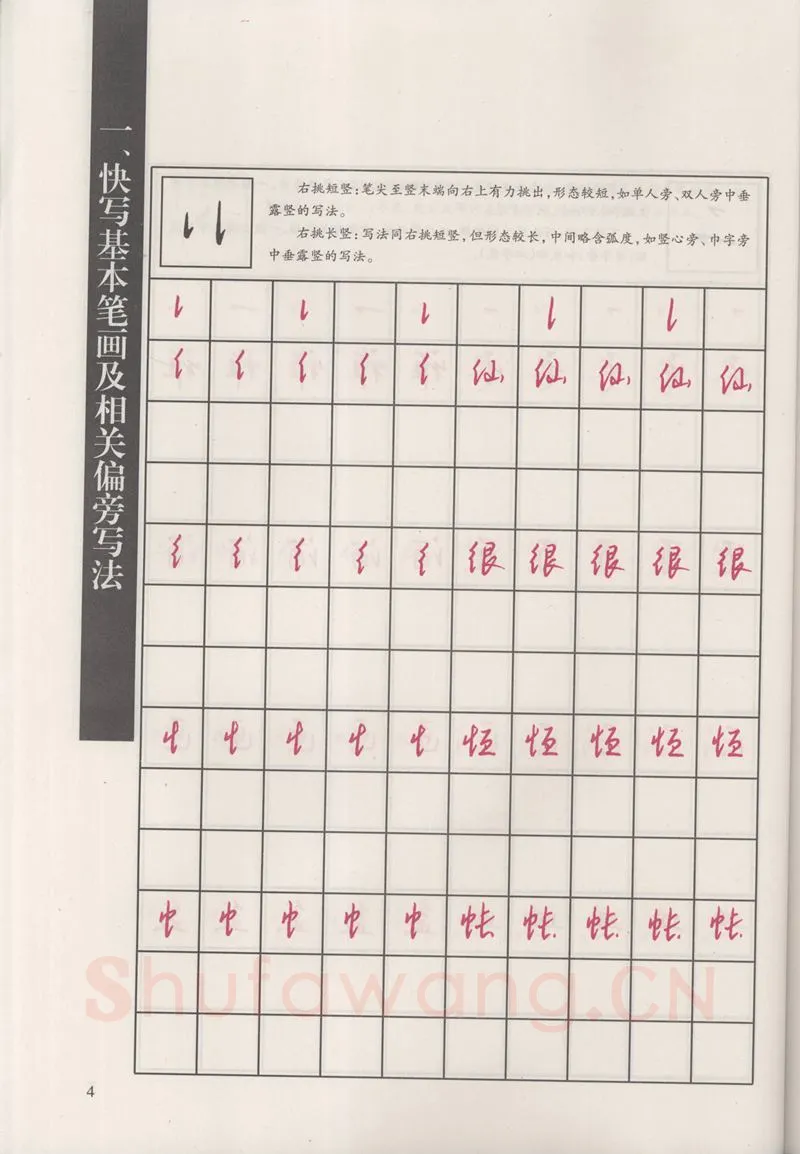 一、快写基本笔画及相关偏旁写法
右挑短竖：笔尖至竖末端向右上有力挑出，形态较短，如单人旁、双人旁中垂
露竖的写法。
右挑长竖：写法同右挑短竖，但形态较长，中间略含弧度，如竖心旁、巾字旁
中垂露竖的写法。
亻 亻 亻 亻 亻 仙 仙 仙 仙 仙
彳 彳 彳 彳 彳 很 很 很 很 很
忄 忄 忄 忄 忄 恒 恒 恒 恒 恒
巾 巾 巾 巾 巾 帐 帐 帐 帐 帐
Shufawang.CN
4